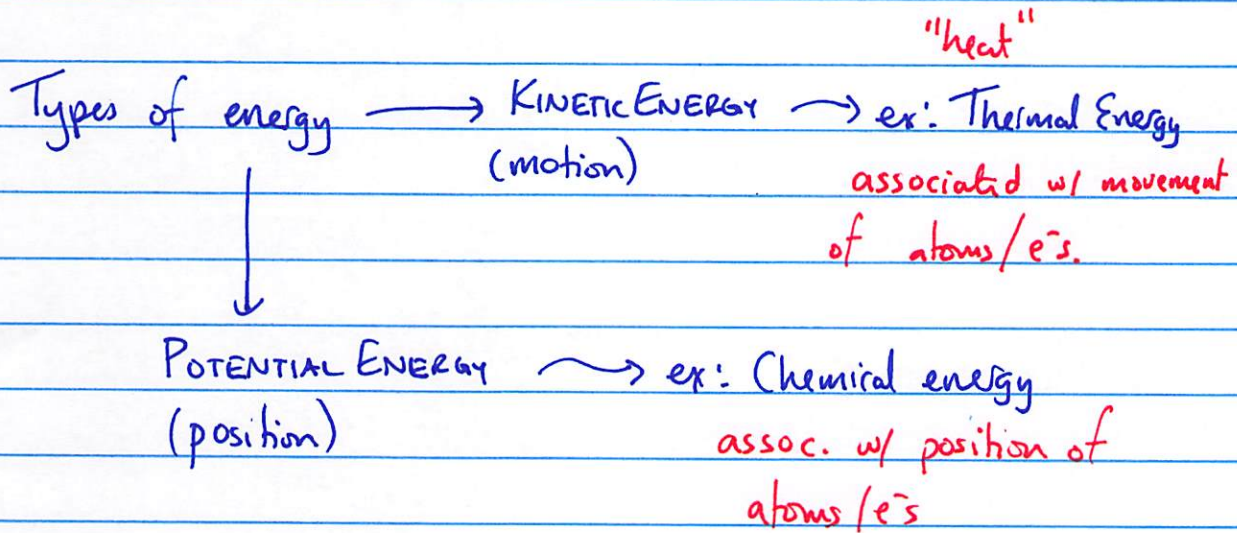 "heat"
Types of energy → KINETIC ENERGY → ex: Thermal Energy
(motion)
associated w/ movement
of atoms/e⁻s.
↓
POTENTIAL ENERGY → ex: Chemical energy
(position)
assoc. w/ position of
atoms/e⁻s